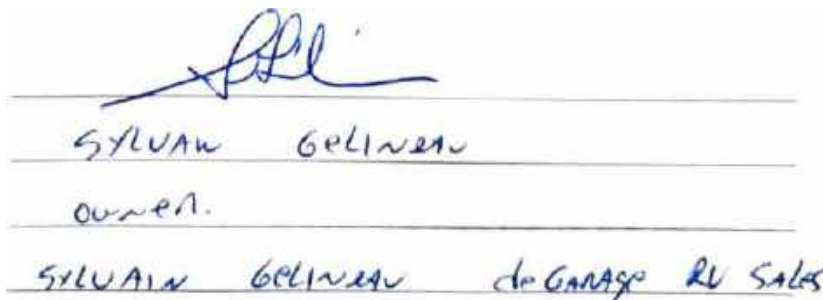 SYLVAIN GELINEAU
owner.
SYLVAIN GELINEAU de GARAGE RV SALES